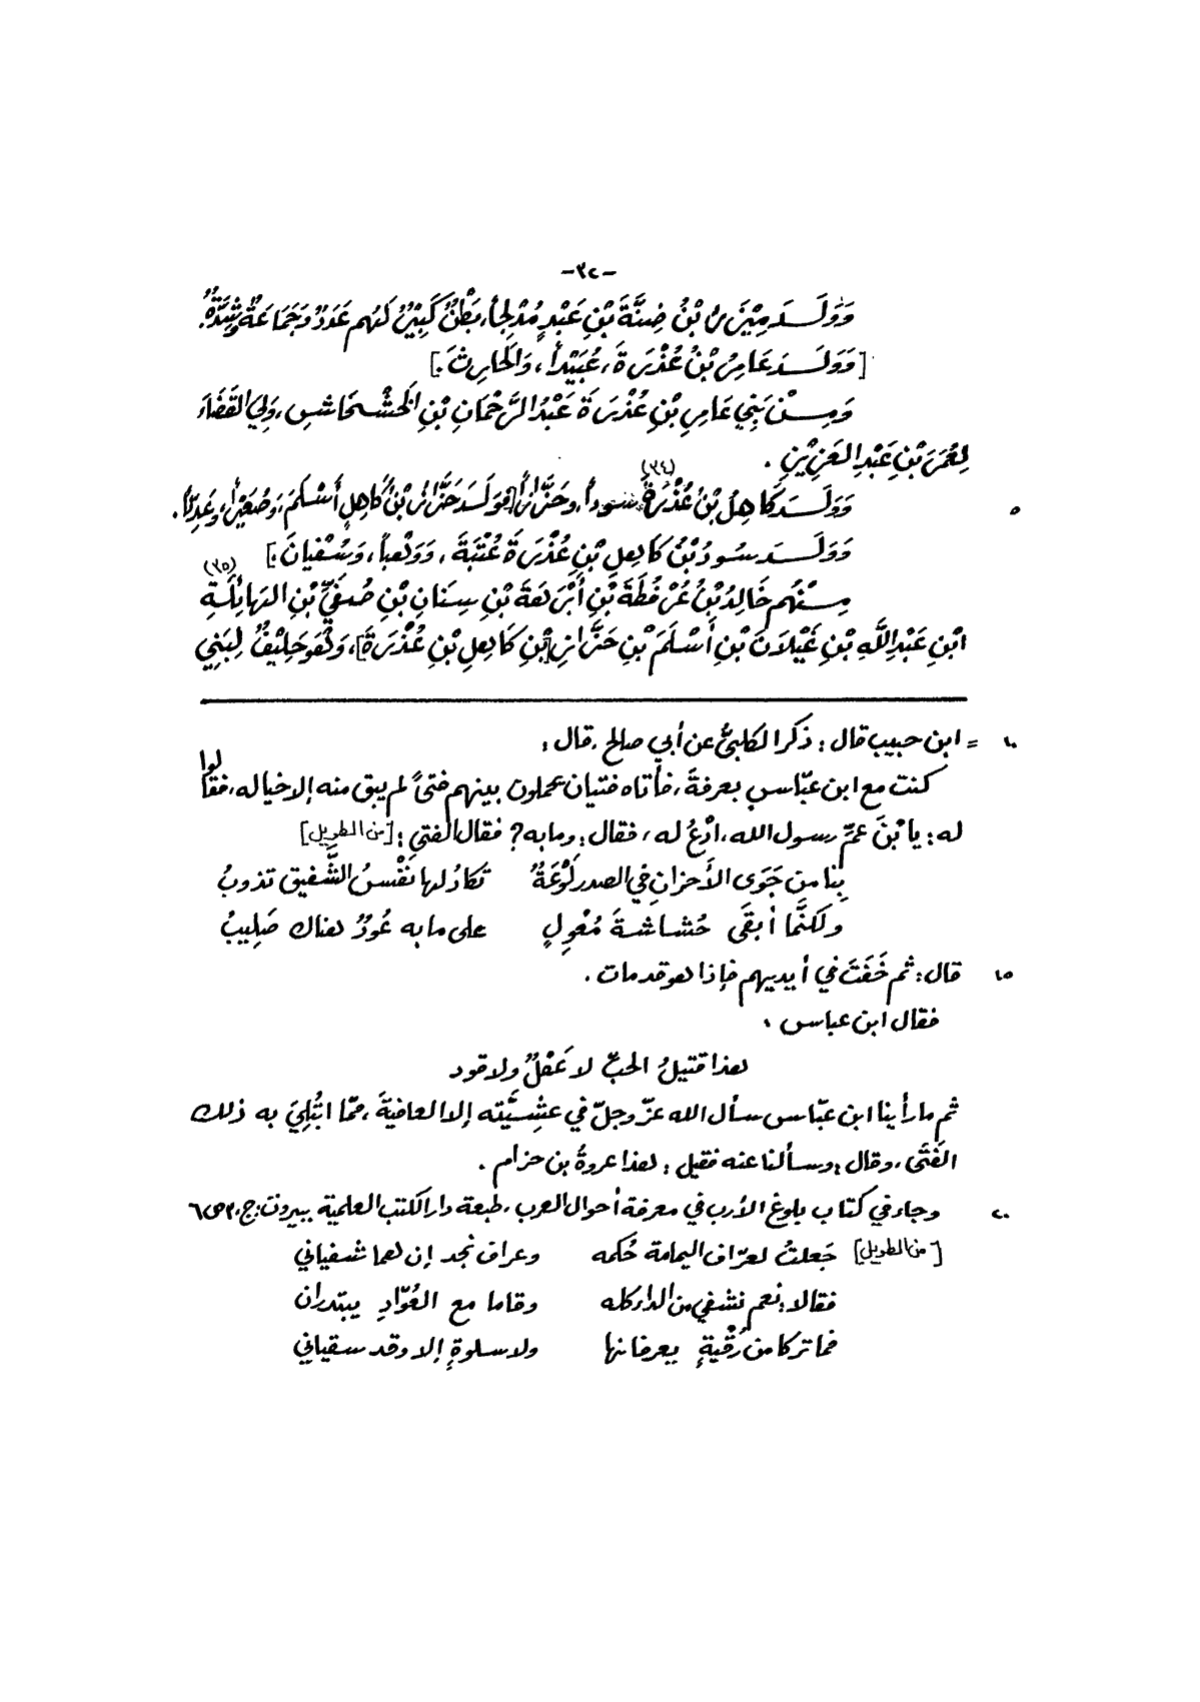 -٣٢-
وَوَلَدَ مِيْزَنُ بْنُ ضِنَّةَ بْنِ عَبْدٍ مُدْلِجاً، بَطْنٌ كَبِيْرٌ لَهُم عَدَدٌ وَجَمَاعَةٌ وشِدَّةٌ.
[وَوَلَدَ عَامِرُ بْنُ عُذْرَةَ، عُبَيْداً، وَالحَارِثَ.]
وَمِنْ بَنِي عَامِرِ بْنِ عُذْرَةَ عَبْدُ الرَّحْمَانِ بْنِ الخَشْخَاشِ، وَلِيَ القَضَاءَ
لِعُمَرَ بْنِ عَبْدِ العَزِيْزِ.
٥ وَوَلَدَ كَاهِلُ بْنُ عُذْرَةَ (٣٤) سُوداً، وحَزَّازاً [فوَلَدَ حَزَّازُ بْنُ كَاهِلٍ أَسْلَمَ، وَصُعَيْراً، وَعَدِيّاً.
وَوَلَدَ سُودُ بْنُ كَاهِلِ بْنِ عُذْرَةَ عُتْبَةَ، وَوَهْباً، وَسُفْيانَ.]
مِنْهُم خَالِدُ بْنُ عُرْفُطَةَ بْنِ أَبْرَهَةَ بْنِ سِنَانِ بْنِ صُيَفِيِّ بْنِ الهَائِلَةِ (٣٥)
ابْنِ عَبْدِ اللَّهِ بْنِ غَيْلَانَ بْنِ أَسْلَمَ بْنِ حَزَّازِ [بْنِ كَاهِلِ بْنِ عُذْرَةَ]، وَهُوَ حَلِيْفٌ لِبَنِي
١٠ = ابن حبيب قال: ذكر الكلبيُّ عن أبي صالح، قال:
كنت مع ابن عبّاسٍ بعرفةَ، فأتاه فتيان يحملون بينهم فتىً لم يبق منه إلا خياله، فقالوا
له: يا بْنَ عمّ رسول الله، ادْعُ له، فقال: ومابه؟ فقال الفتى: [من الطويل]
بِنا من جَوَى الأَحزانِ في الصدر لَوْعَةٌ تكادُ لها نَفْسُ الشَّفيق تذوبُ
ولكنَّما أبقَى حُشاشةَ مُعْوِلٍ على مابه عُودٌ هناك صَلِيبُ
١٥ قال: ثم خَفَتَ في أيديهم فإذا هو قد مات.
فقال ابن عباس:
هذا قتيلُ الحبّ لا عَقْلٌ ولا قود
ثم مارأينا ابن عبّاس سأل الله عزّ وجلّ في عشِيَّته إلا العافيةَ، ممّا ابْتُلِيَ به ذلك
الفَتَى، وقال: وسألنا عنه فقيل: هذا عروةُ بن حزام.
٢٠ وجاء في كتاب بلوغ الأرب في معرفة أحوال العرب، طبعة دار الكتب العلمية ببيروت: ج،٣ ص٦
[من الطويل] جَعلتُ لعرّاف اليمامة حُكمه وعراف نجد إن هما شفياني
فقالا: نعم نشفي من الداء كله وقاما مع العُوّادِ يبتدران
فما تركا من رُقْيةٍ يعرفانها ولا سلوةٍ إلا وقد سقياني